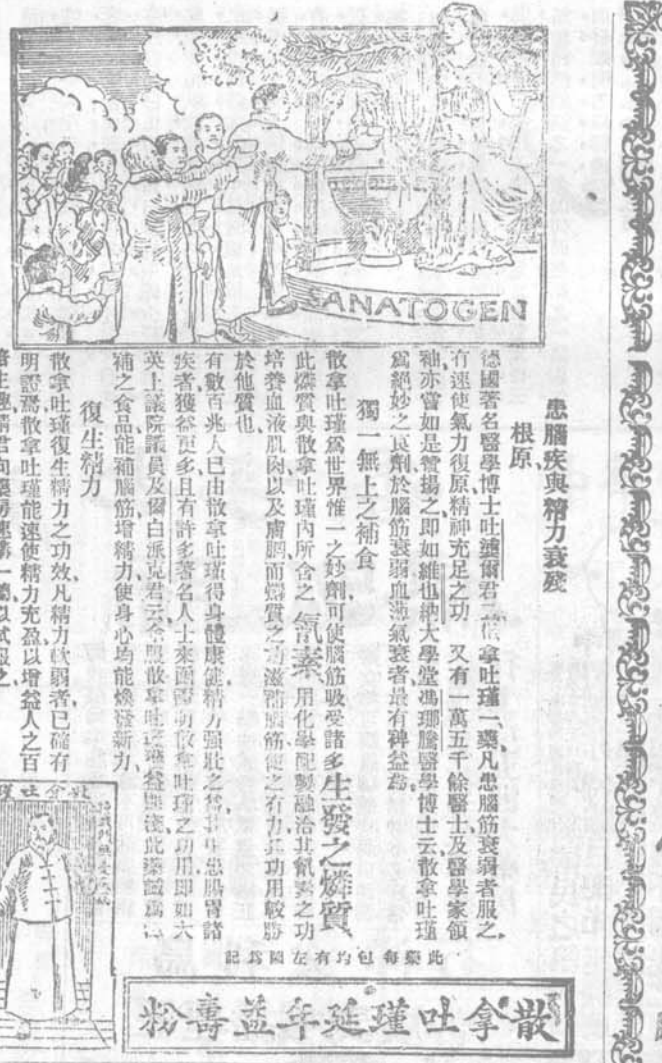 SANATOGEN
患腦疾與精力衰殘
根原
德國著名醫學博士吐爾君云散拿吐瑾一藥凡患腦筋衰弱者服之
有速使氣力復原精神充足之功 又有一萬五千餘醫士及醫學家領
袖亦嘗如是贊揚之即如維也納大學堂馮瑯騰醫學博士云散拿吐瑾
爲絕妙之良劑於腦筋衰弱血燕氣衰者最有裨益焉
獨一無上之補食
散拿吐瑾爲世界惟一之妙劑可使腦筋吸受諸多生發之燐質
此燐質與散拿吐瑾內所含之氮素用化學配製融洽其氮素之功
培養血液肌肉以及膚膶而燐質之功滋補腦筋使之有力其功用較勝
於他質也
有數百兆人已由散拿吐瑾得身體康健精力强壯之益其患腸胃諸
疾者獲益更多且有許多著名人士來函證明散拿吐瑾之功用即如大
英上議院議員及爾白派克君云余服散拿吐瑾獲益匪淺此藥誠爲
補之食品能補腦筋增精力使身心均能煥發新力
復生精力
散拿吐瑾復生精力之功效凡精力軟弱者已確有
明證焉散拿吐瑾能速使精力充盈以增益人之百
此藥每包均有左圖爲記
散拿吐瑾延年益壽粉
散拿吐瑾